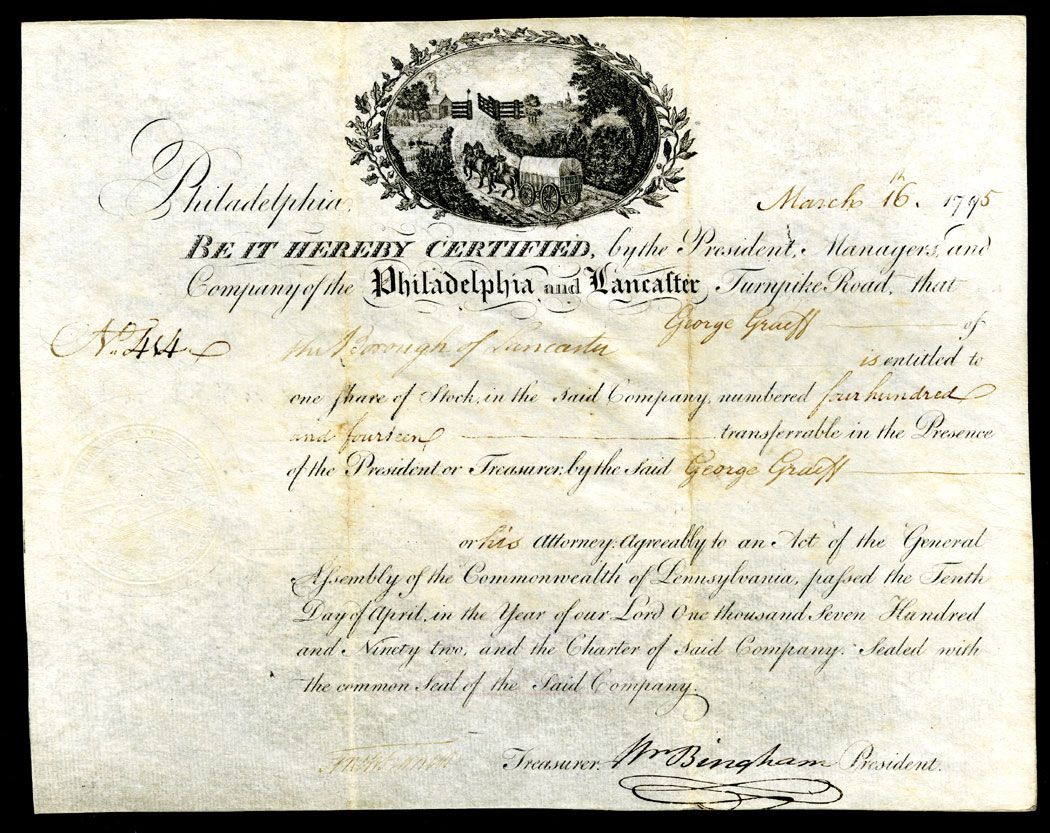 Philadelphia, March 16th. 1795
BE IT HEREBY CERTIFIED, by the President, Managers, and
Company of the Philadelphia and Lancaster Turnpike Road, that
George Graeff of
No. 414 the Borough of Lancaster is entitled to
one share of Stock, in the said Company, numbered four hundred
and fourteen transferrable in the Presence
of the President or Treasurer, by the Said George Graeff
or his Attorney. Agreeably to an Act of the General
Assembly of the Commonwealth of Pennsylvania, passed the Tenth
Day of April, in the Year of our Lord One thousand Seven Hundred
and Ninety two, and the Charter of said Company. Sealed with
the common Seal of the Said Company.
Treasurer. Wm Bingham President.